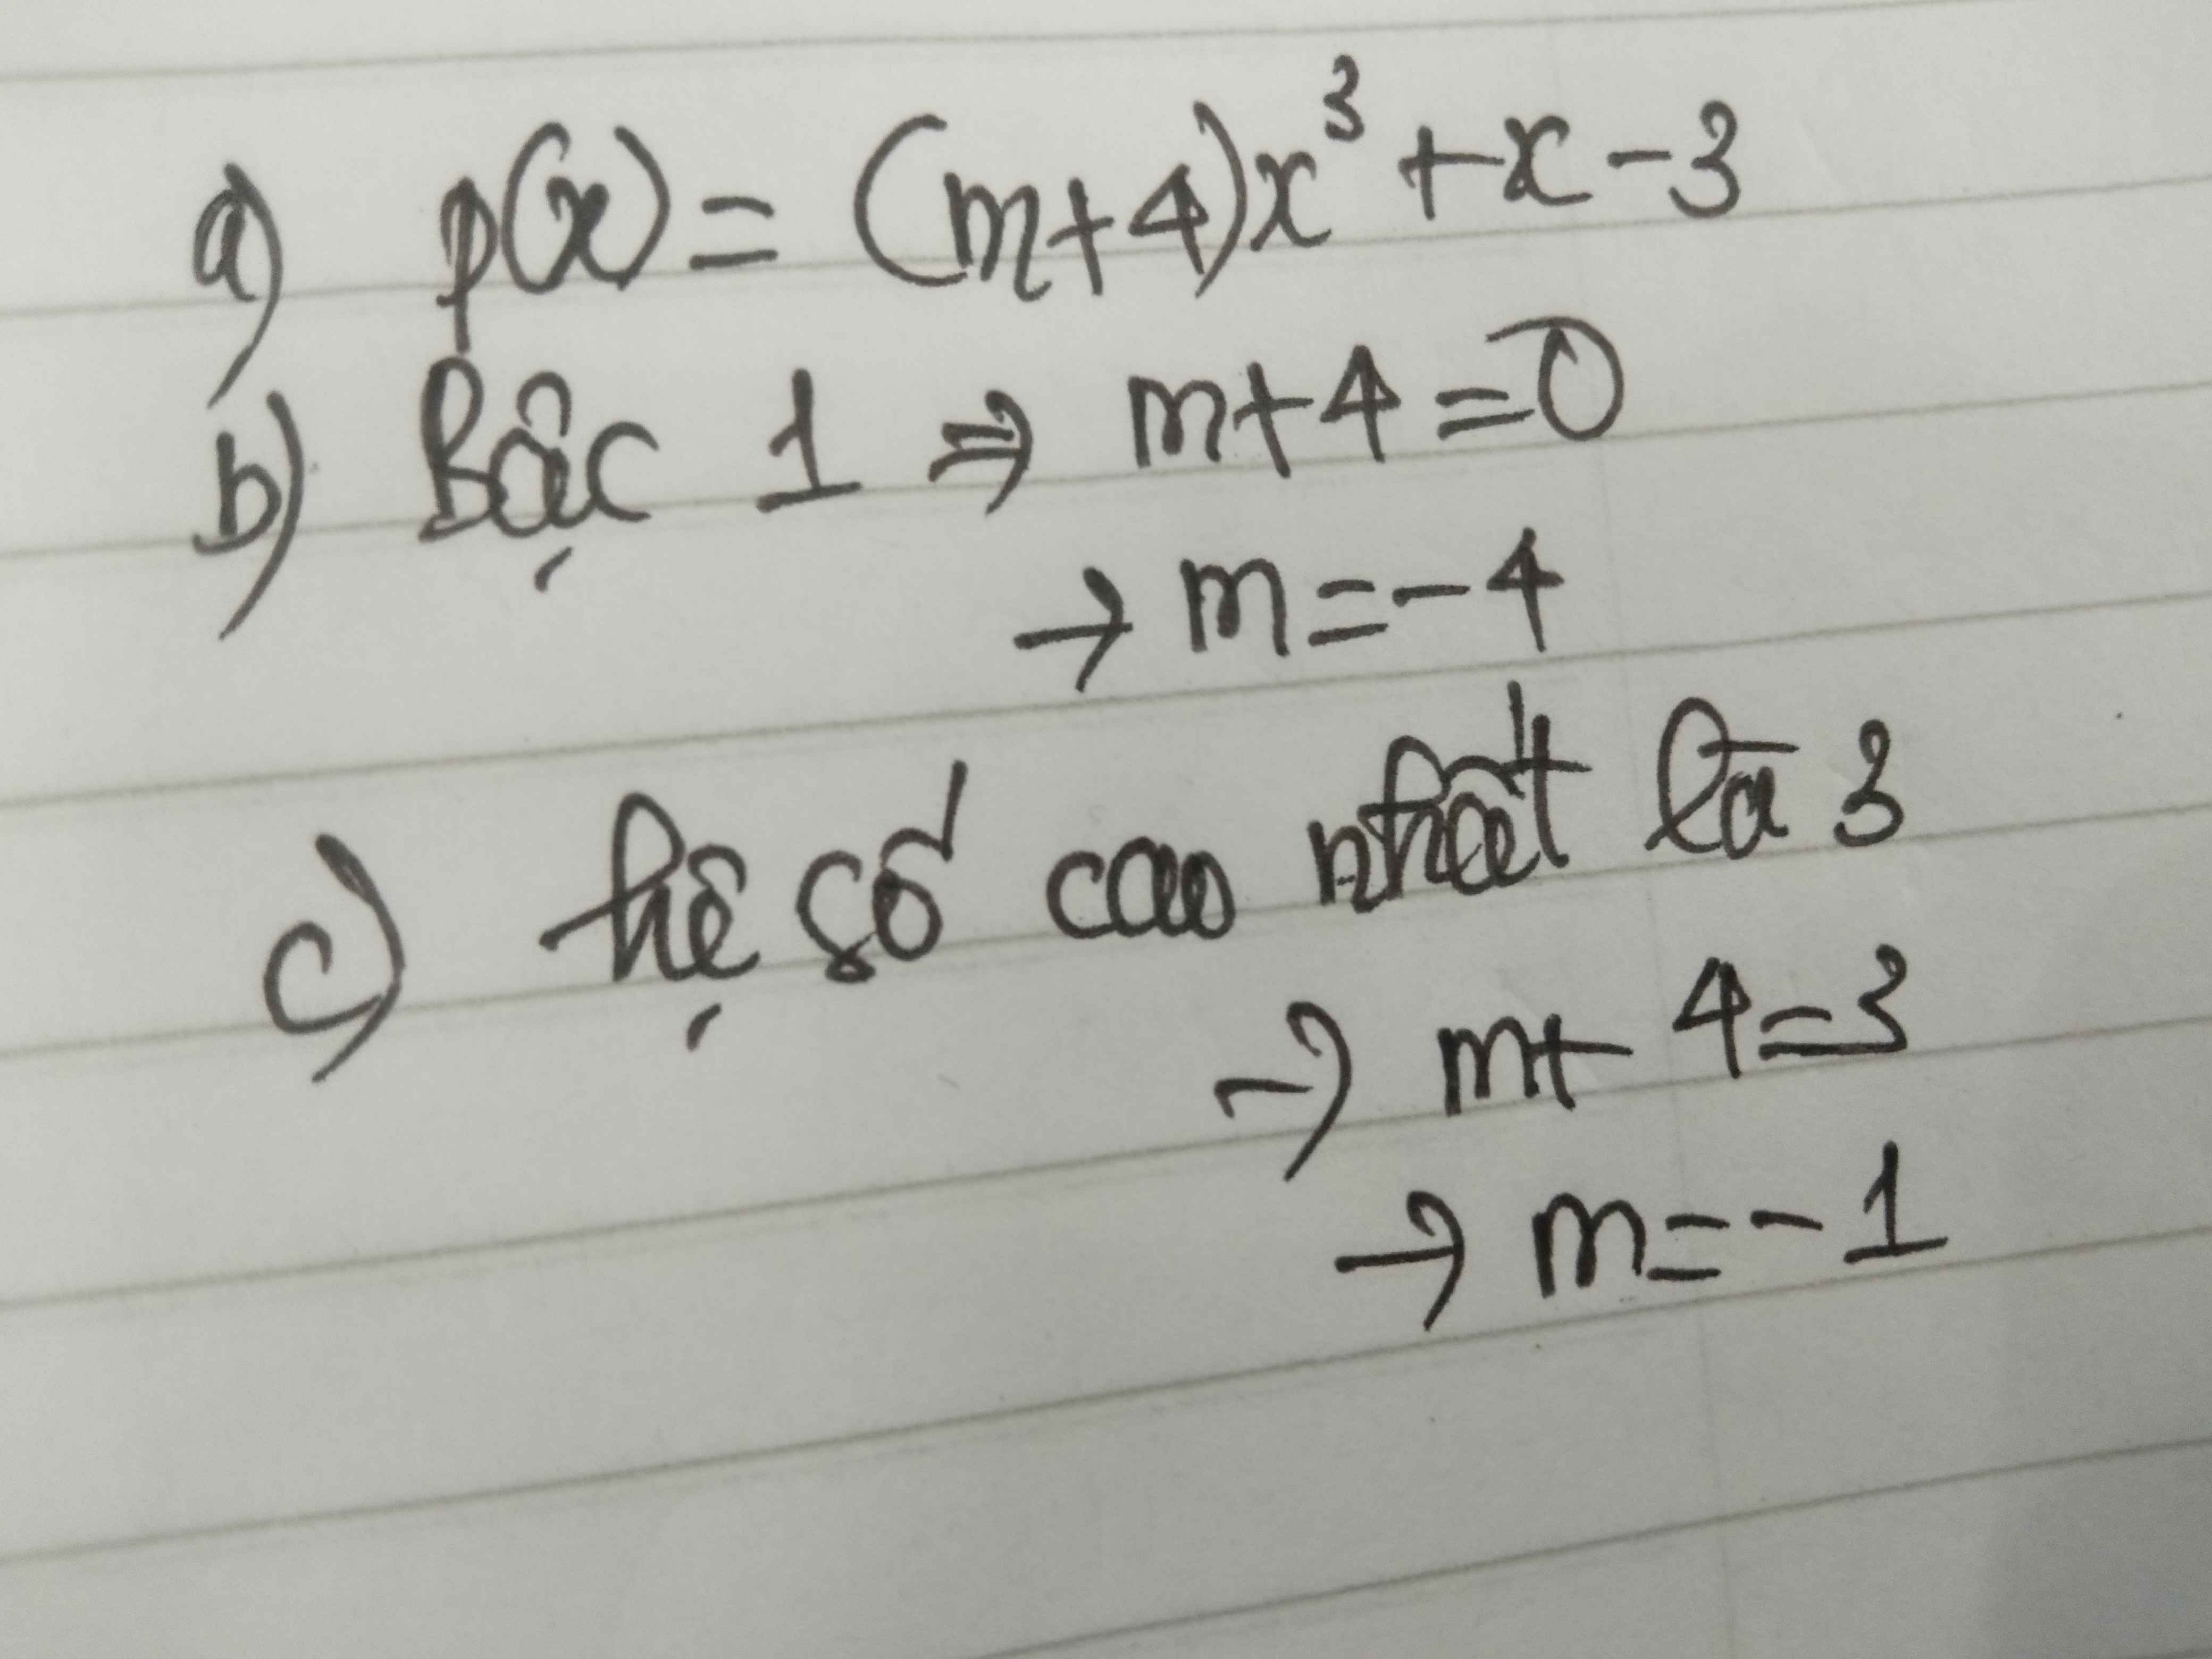 a) p(x) = (m+4)x³ + x - 3
b) Bậc 1 ⇒ m+4 = 0
→ m = - 4
c) hệ số cao nhất là 3
→ m+ 4 = 3
→ m = - 1